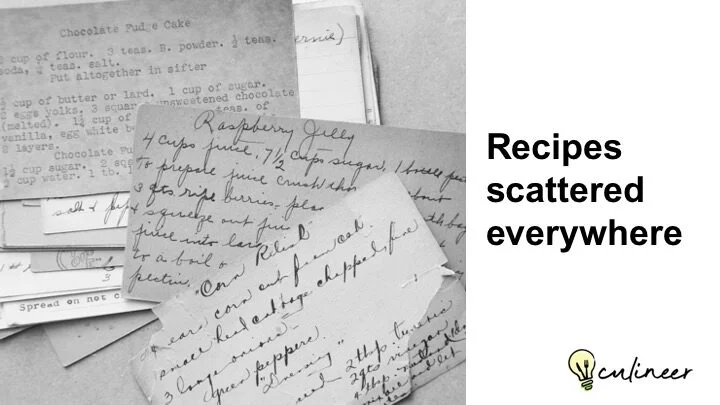 Chocolate Fudge Cake
cup of flour. 3 teas. B. powder. ½ teas.
soda, teas. salt.
Put altogether in sifter
cup of butter or lard. 1 cup of sugar.
2 eggs yolks. 3 squar unsweetened chocolate
(melted). 1½ cup of teas. of
vanilla, egg white be
layers.
Chocolate Fu
1½ cup sugar. 2 sq
cup water. 1 tb.
ernie)
Raspberry Jelly
4 cups juice, 7½ cups sugar, 1 bottle pec
To prepare juice crush tho about
3 qts ripe berries, plac
& squeeze out jui
juice into lar
to a boil &
pectin,
salt & pep
Spread on not c
"Corn Relish"
ears corn cut from cob
small head cabbage chopped fine
3 large onions
green peppers
"Dressing"
2 tbsp. tumeric
2 qts vinegar
Recipes
scattered
everywhere
culineer